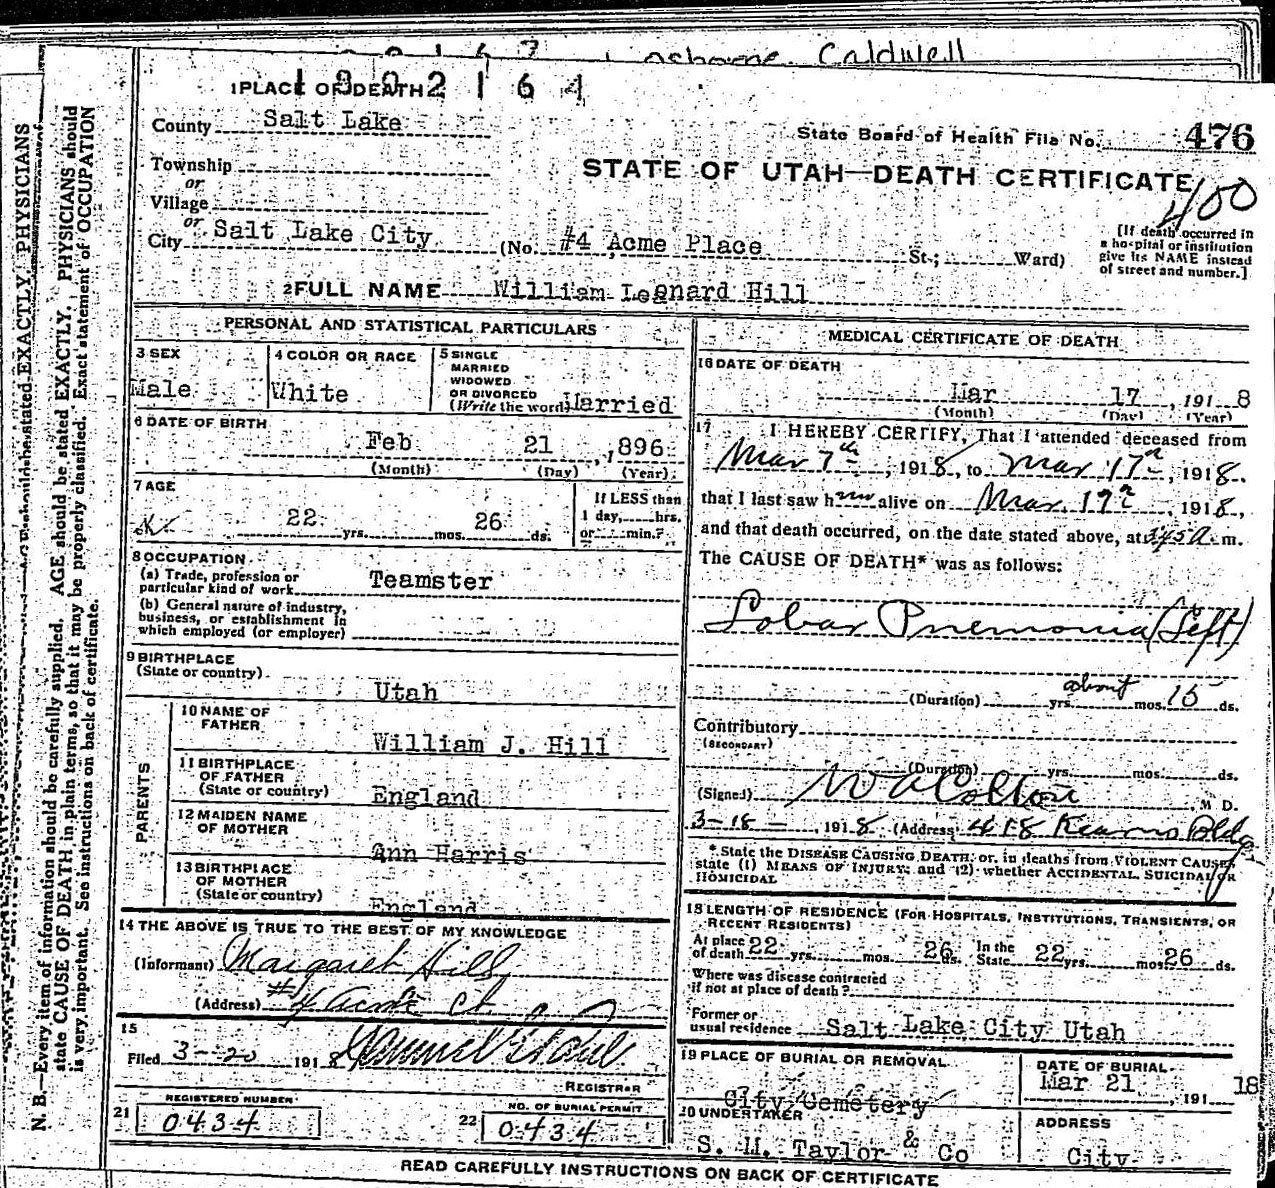 Osborne Caldwell
1902164
1 PLACE OF DEATH
County Salt Lake
State Board of Health File No. 476
Township
STATE OF UTAH—DEATH CERTIFICATE
or
400
Village
or
City Salt Lake City (No. #4 Acme Place St.; Ward)
[If death occurred in
a hospital or institution
give its NAME instead
of street and number.]
2 FULL NAME William Leonard Hill
PERSONAL AND STATISTICAL PARTICULARS
3 SEX
Male
4 COLOR OR RACE
White
5 SINGLE
MARRIED
WIDOWED
OR DIVORCED
(Write the word) Married
6 DATE OF BIRTH
Feb 21, 1896
(Month) (Day) (Year)
7 AGE
22 yrs. mos. 26 ds.
If LESS than
1 day, hrs.
or min.?
8 OCCUPATION
(a) Trade, profession or
particular kind of work Teamster
(b) General nature of industry,
business, or establishment in
which employed (or employer)
9 BIRTHPLACE
(State or country)
Utah
PARENTS
10 NAME OF
FATHER
William J. Hill
11 BIRTHPLACE
OF FATHER
(State or country) England
12 MAIDEN NAME
OF MOTHER
Ann Harris
13 BIRTHPLACE
OF MOTHER
(State or country)
England
14 THE ABOVE IS TRUE TO THE BEST OF MY KNOWLEDGE
(Informant) Margaret Hill
(Address) #4 Acme Ct
15
Filed 3-20 1918
REGISTRAR
REGISTERED NUMBER
21 0434
NO. OF BURIAL PERMIT
22 0434
MEDICAL CERTIFICATE OF DEATH
16 DATE OF DEATH
Mar 17, 1918
(Month) (Day) (Year)
17 I HEREBY CERTIFY, That I attended deceased from
Mar 7th, 1918, to Mar 17th, 1918.
that I last saw him alive on Mar. 17th, 1918,
and that death occurred, on the date stated above, at 345 A. m.
The CAUSE OF DEATH* was as follows:
Lobar Pnemonia (Left)
(Duration) yrs. about mos. 15 ds.
Contributory
(SECONDARY)
(Duration) yrs. mos. ds.
(Signed) W A Colton M D.
3-18-1918 (Address) 418 Kearns Bldg
*State the DISEASE CAUSING DEATH; or, in deaths from VIOLENT CAUSES
state (1) MEANS OF INJURY; and (2) whether ACCIDENTAL, SUICIDAL OR
HOMICIDAL
18 LENGTH OF RESIDENCE (FOR HOSPITALS, INSTITUTIONS, TRANSIENTS, OR
RECENT RESIDENTS)
At place
of death 22 yrs. mos. 26 ds.
In the
State 22 yrs. mos. 26 ds.
Where was disease contracted
if not at place of death?
Former or
usual residence Salt Lake City Utah
19 PLACE OF BURIAL OR REMOVAL
City Cemetery
DATE OF BURIAL
Mar 21, 191 18
20 UNDERTAKER
S. M. Taylor & Co
ADDRESS
City
READ CAREFULLY INSTRUCTIONS ON BACK OF CERTIFICATE
N. B.—Every item of information should be carefully supplied. AGE should be stated EXACTLY. PHYSICIANS
state CAUSE OF DEATH in plain terms, so that it may be properly classified. Exact statement of OCCUPATION
is very important. See instructions on back of certificate.